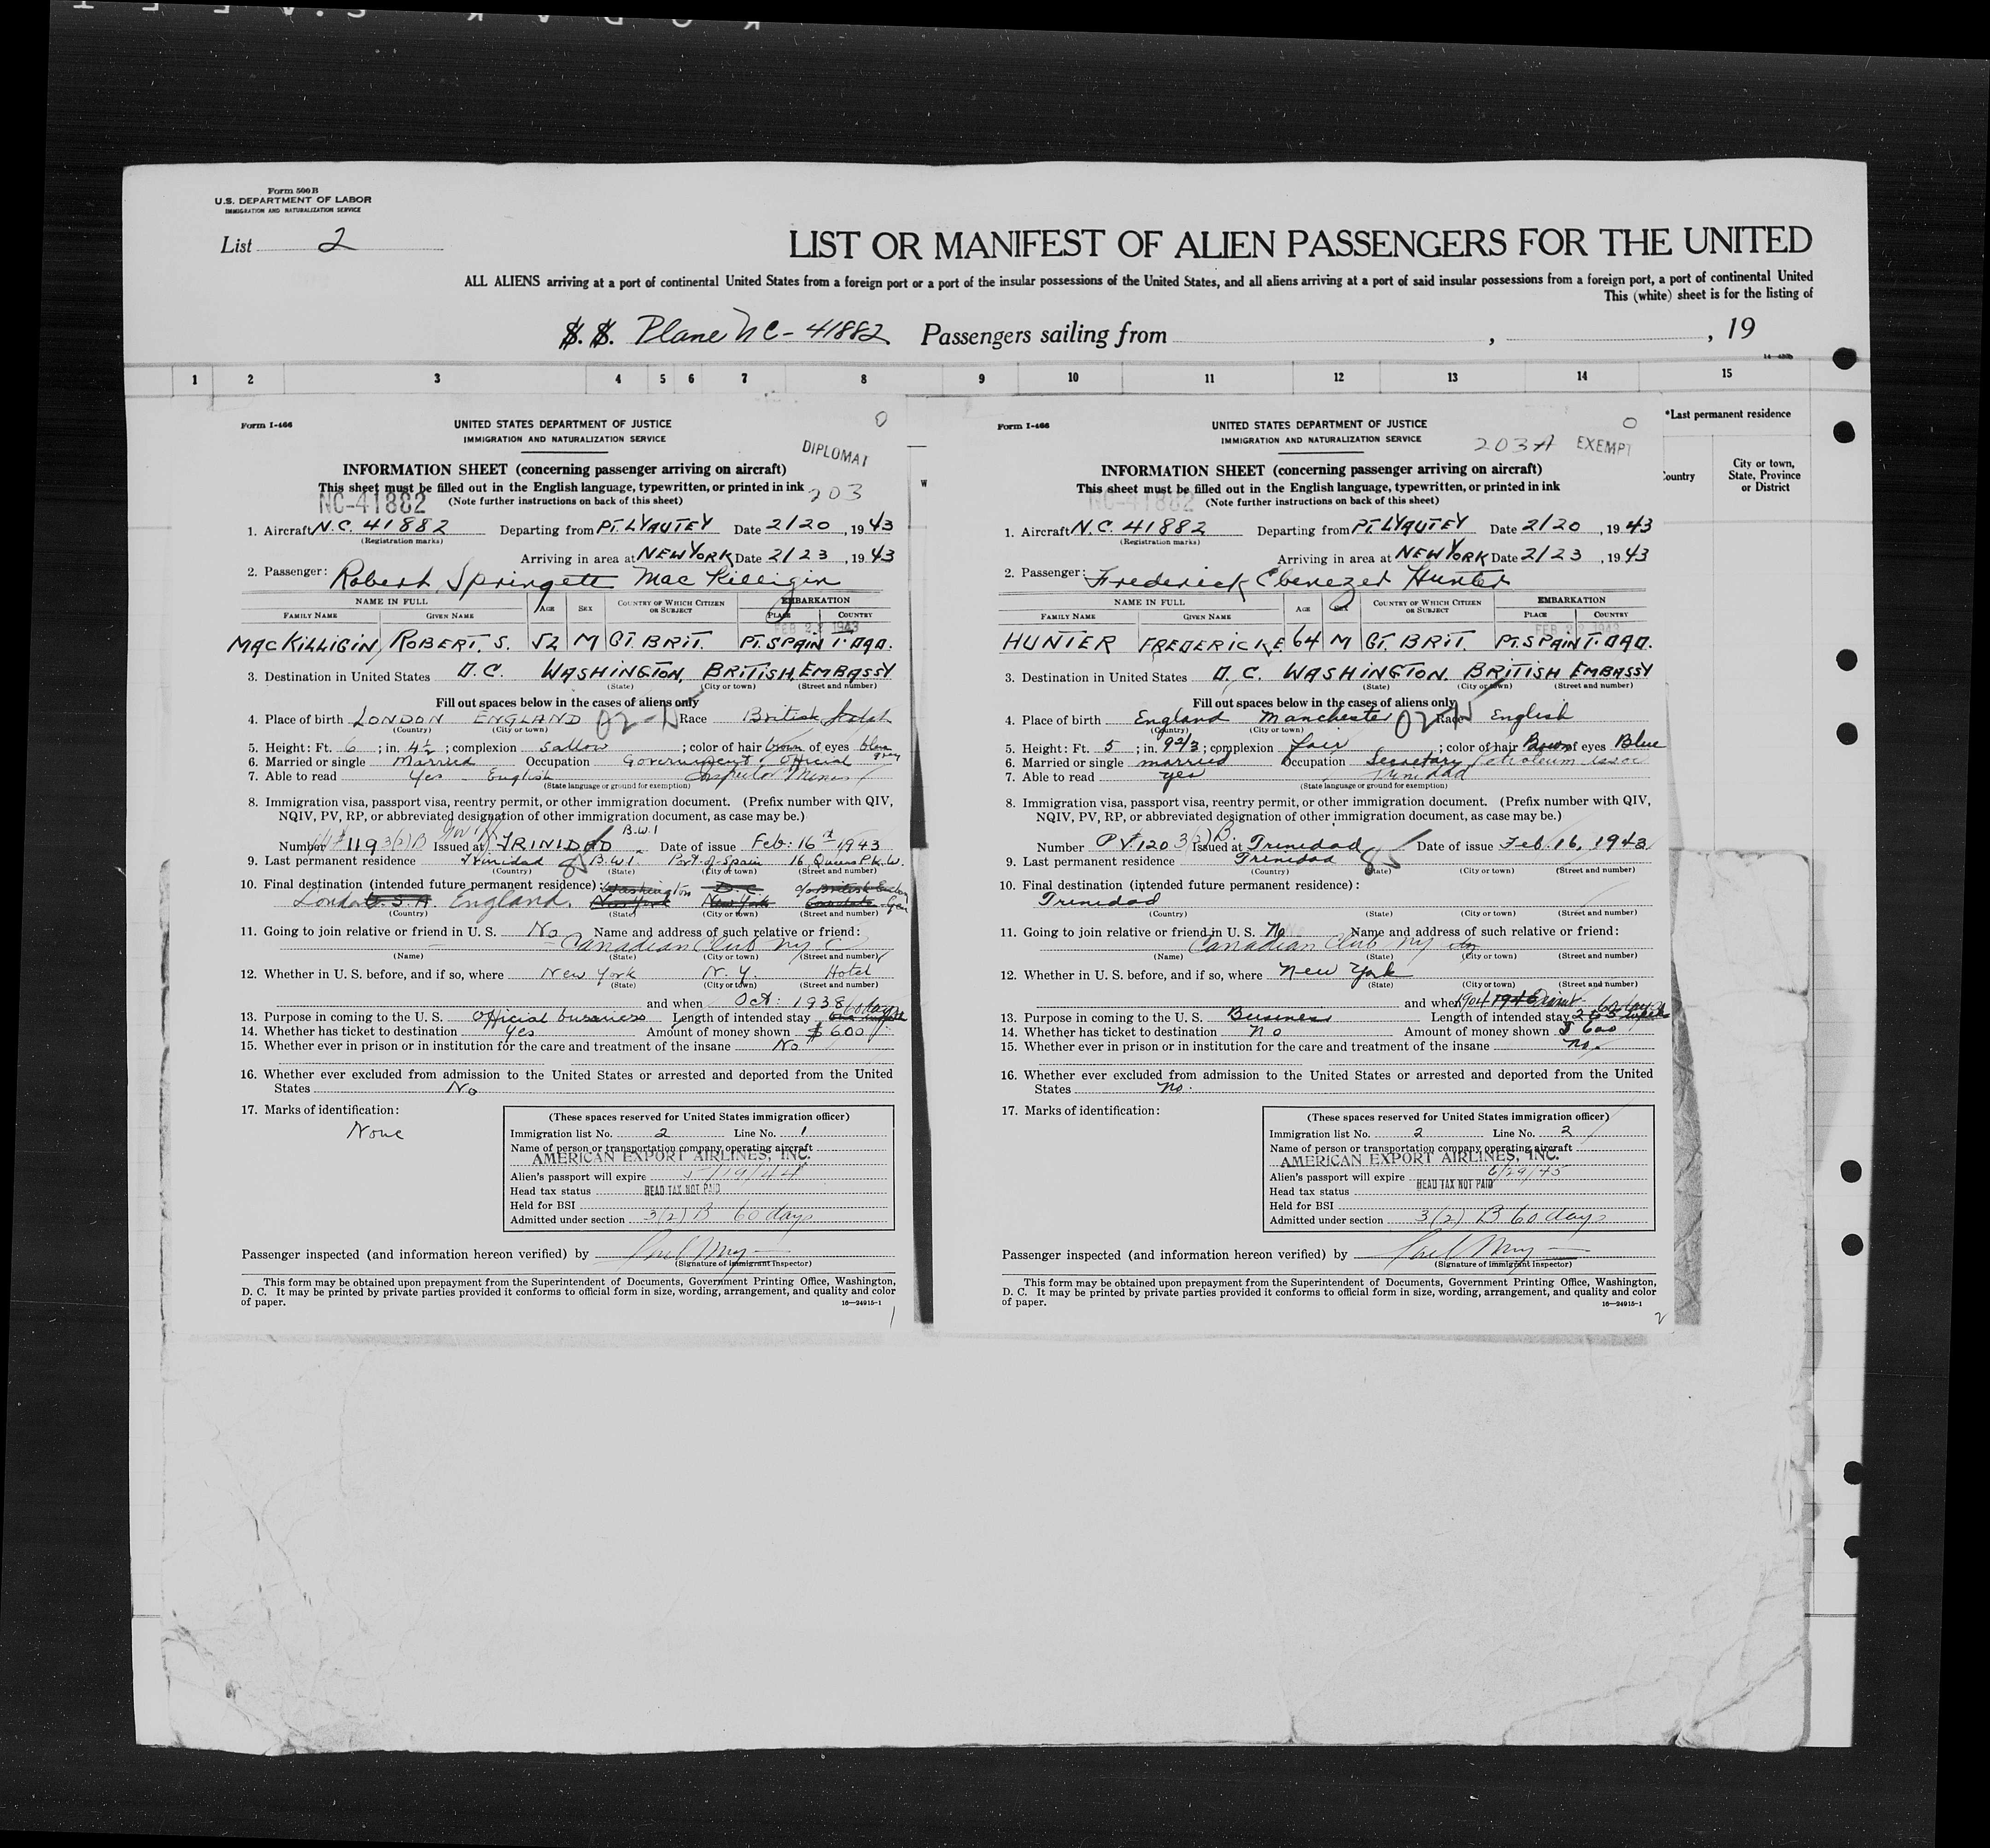 Form 500 B
U.S. DEPARTMENT OF LABOR
IMMIGRATION AND NATURALIZATION SERVICE
List 2
LIST OR MANIFEST OF ALIEN PASSENGERS FOR THE UNITED
ALL ALIENS arriving at a port of continental United States from a foreign port or a port of the insular possessions of the United States, and all aliens arriving at a port of said insular possessions from a foreign port, a port of continental United
This (white) sheet is for the listing of
S. S. Plane NC-41882 Passengers sailing from , , 19
1 2 3 4 5 6 7 8 9 10 11 12 13 14 15
*Last permanent residence
City or town, State, Province or District
Form I-466
UNITED STATES DEPARTMENT OF JUSTICE
IMMIGRATION AND NATURALIZATION SERVICE
DIPLOMAT
INFORMATION SHEET (concerning passenger arriving on aircraft)
This sheet must be filled out in the English language, typewritten, or printed in ink 203
NC-41882 (Note further instructions on back of this sheet)
1. Aircraft N.C. 41882 Departing from PT. LYAUTEY Date 2/20, 1943
(Registration marks)
Arriving in area at NEW YORK Date 2/23, 1943
2. Passenger: Robert Springett MacKilligin
NAME IN FULL AGE SEX COUNTRY OF WHICH CITIZEN OR SUBJECT EMBARKATION
FAMILY NAME GIVEN NAME PLACE COUNTRY
FEB 22 1943
MACKILLIGIN, ROBERT. S. 52 M GT. BRIT. PT. SPAIN T.DAD.
3. Destination in United States D.C. WASHINGTON, BRITISH EMBASSY
(State) (City or town) (Street and number)
Fill out spaces below in the cases of aliens only
4. Place of birth LONDON ENGLAND Race British
(Country) (City or town)
5. Height: Ft. 6; in. 4½; complexion sallow; color of hair brown of eyes blue grey
6. Married or single Married Occupation Government Official
7. Able to read Yes English Inspector Mines
(State language or ground for exemption)
8. Immigration visa, passport visa, reentry permit, or other immigration document. (Prefix number with QIV,
NQIV, PV, RP, or abbreviated designation of other immigration document, as case may be.)
Number 119 3(2)B Issued at TRINIDAD B.W.I. Date of issue Feb: 16th 1943
9. Last permanent residence Trinidad B.W.I. Port-of-Spain 16, Queens P.K. W.
(Country) (State) (City or town) (Street and number)
10. Final destination (intended future permanent residence): Washington D.C. c/o British
London U.S.A. England. New York New York
(Country) (State) (City or town) (Street and number)
11. Going to join relative or friend in U. S. No Name and address of such relative or friend:
Canadian Club NYC
(Name) (State) (City or town) (Street and number)
12. Whether in U. S. before, and if so, where New York N.Y. Hotel
(State) (City or town) (Street and number)
and when Oct: 1938
13. Purpose in coming to the U. S. Official business Length of intended stay 60 days
14. Whether has ticket to destination Yes Amount of money shown $600
15. Whether ever in prison or in institution for the care and treatment of the insane No
16. Whether ever excluded from admission to the United States or arrested and deported from the United
States No
17. Marks of identification:
None
(These spaces reserved for United States immigration officer)
Immigration list No. 2 Line No. 1
Name of person or transportation company operating aircraft
AMERICAN EXPORT AIRLINES, INC.
Alien's passport will expire 5/19/44
Head tax status HEAD TAX NOT PAID
Held for BSI
Admitted under section 3(2) B 60 days
Passenger inspected (and information hereon verified) by
(Signature of immigrant inspector)
This form may be obtained upon prepayment from the Superintendent of Documents, Government Printing Office, Washington,
D. C. It may be printed by private parties provided it conforms to official form in size, wording, arrangement, and quality and color
of paper. 16—24915-1
1
Form I-466
UNITED STATES DEPARTMENT OF JUSTICE
IMMIGRATION AND NATURALIZATION SERVICE
203A EXEMPT
INFORMATION SHEET (concerning passenger arriving on aircraft)
This sheet must be filled out in the English language, typewritten, or printed in ink
NC-41882 (Note further instructions on back of this sheet)
1. Aircraft N.C. 41882 Departing from PT. LYAUTEY Date 2/20, 1943
(Registration marks)
Arriving in area at NEW YORK Date 2/23, 1943
2. Passenger: Frederick Ebenezer Hunter
NAME IN FULL AGE SEX COUNTRY OF WHICH CITIZEN OR SUBJECT EMBARKATION
FAMILY NAME GIVEN NAME PLACE COUNTRY
FEB 22 1943
HUNTER FREDERICK E 64 M GT. BRIT. PT. SPAIN T.DAD.
3. Destination in United States D.C. WASHINGTON. BRITISH EMBASSY
(State) (City or town) (Street and number)
Fill out spaces below in the cases of aliens only
4. Place of birth England Manchester Race English
(Country) (City or town)
5. Height: Ft. 5; in. 9 2/3; complexion fair; color of hair Brown of eyes Blue
6. Married or single married Occupation Secretary Petroleum Assoc
7. Able to read yes Trinidad
(State language or ground for exemption)
8. Immigration visa, passport visa, reentry permit, or other immigration document. (Prefix number with QIV,
NQIV, PV, RP, or abbreviated designation of other immigration document, as case may be.)
Number PV 120 3(2)B. Issued at Trinidad Date of issue Feb. 16, 1943
9. Last permanent residence Trinidad
(Country) (State) (City or town) (Street and number)
10. Final destination (intended future permanent residence):
Trinidad
(Country) (State) (City or town) (Street and number)
11. Going to join relative or friend in U. S. No Name and address of such relative or friend:
Canadian Club NY
(Name) (State) (City or town) (Street and number)
12. Whether in U. S. before, and if so, where New York
(State) (City or town) (Street and number)
and when 1904
13. Purpose in coming to the U. S. Business Length of intended stay 60 days
14. Whether has ticket to destination no Amount of money shown $ 600
15. Whether ever in prison or in institution for the care and treatment of the insane no.
16. Whether ever excluded from admission to the United States or arrested and deported from the United
States no.
17. Marks of identification:
(These spaces reserved for United States immigration officer)
Immigration list No. 2 Line No. 2
Name of person or transportation company operating aircraft
AMERICAN EXPORT AIRLINES, INC.
Alien's passport will expire 6/29/45
Head tax status HEAD TAX NOT PAID
Held for BSI
Admitted under section 3(2) B 60 days
Passenger inspected (and information hereon verified) by
(Signature of immigrant inspector)
This form may be obtained upon prepayment from the Superintendent of Documents, Government Printing Office, Washington,
D. C. It may be printed by private parties provided it conforms to official form in size, wording, arrangement, and quality and color
of paper. 16—24915-1
2